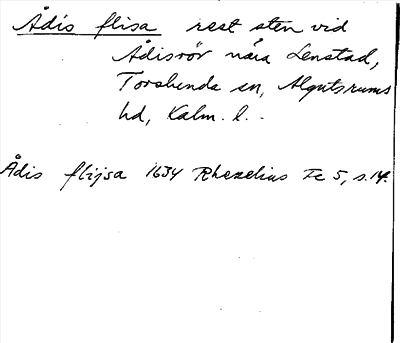 Ådis flisa rest sten vid
Ådisrör nära Lenstad,
Torslunda sn, Algutsrums
hd, Kalm. l.
Ådis flijsa 1634 Rhezelius Fc 5, s. 14.